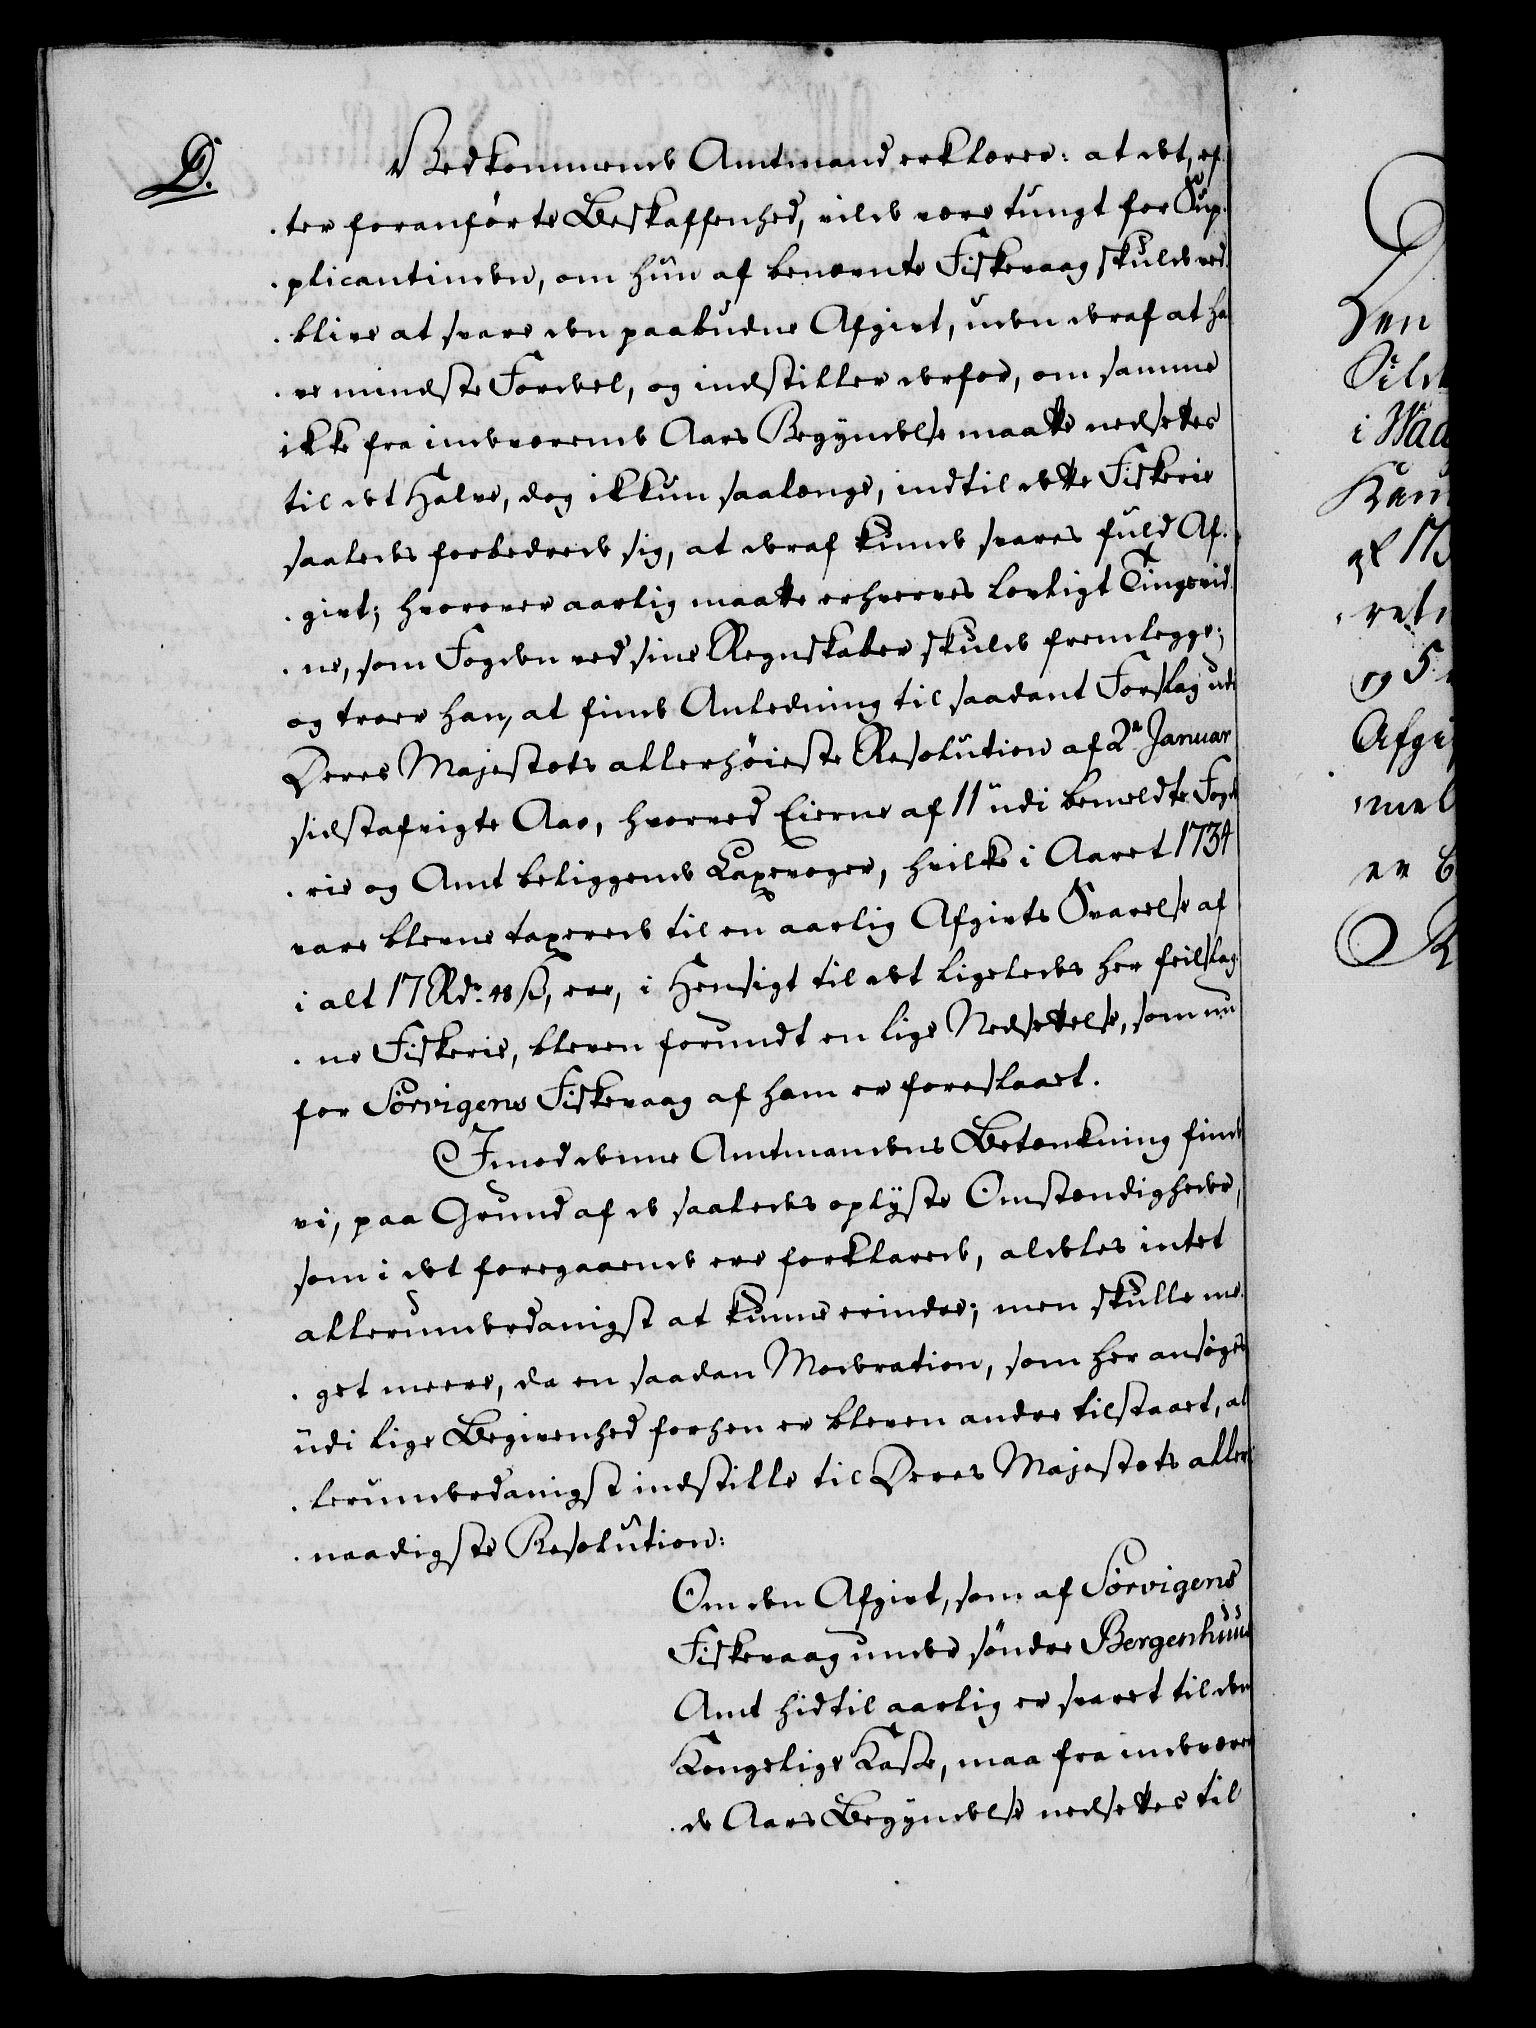 D.
Vedkommende Amtmand erklærer: at det, ef-
ter foranførte Beskaffenhed, vilde være tungt for Sup-
plicantinden, om hun af benævnte Fiskevaag skulde ved-
blive at svare den paabudne Afgivt, uden deraf at ha-
ve mindste Fordeel, og indstiller derfor, om samme
ikke fra indeværende Aars Begyndelse maatte nedsettes
til det Halve, dog ikkun saalænge, indtil dette Fiskerie
saaledes forbedrede sig, at deraf kunde svares fuld Af-
givt; hvorover aarlig maatte erhverves lovligt Tingsvid-
ne, som Fogden ved sine Regnskaber skulde fremlegge;
og troer han, at finde Anledning til saadant Forslag udi
Deres Majestæts allerhøieste Resolution af 2n Januar
sidstafvigte Aar, hvorved Eierne af 11 udi bemeldte Fogde-
rie og Amt beliggende Laxevoger, hvilke i Aaret 1734
vare blevne taxerede til en aarlig Afgivts Svarelse af
i alt 17 Rdr. 48 s, ere, i Hensigt til det ligeledes her feilslag-
ne Fiskerie, bleven forundt en lige Nedsettelse, som nu
for Sörvigens Fiskevaag af ham er foreslaaet.
Imod denne Amtmandens Betænkning finde
vi, paa Grund af de saaledes oplyste Omstændigheder,
som i det foregaaende ere forklarede, aldeles intet
allerunderdanigst at kunne erindre; men skulle me-
get meere, da en saadan Moderation, som her ansøges
udi lige Begivenhed forhen er bleven andre tilstaaet, al-
lerunderdanigst indstille til Deres Majestæts aller-
naadigste Resolution:
Om den Afgivt, som af Sörvigens
Fiskevaag under søndre Bergenhuus
Amt hidtil aarlig er svaret til den
Kongelige Kasse, maa fra indeværen-
de Aars Begyndelse nedsettes til
Den
i Waa
og 5
Afgi